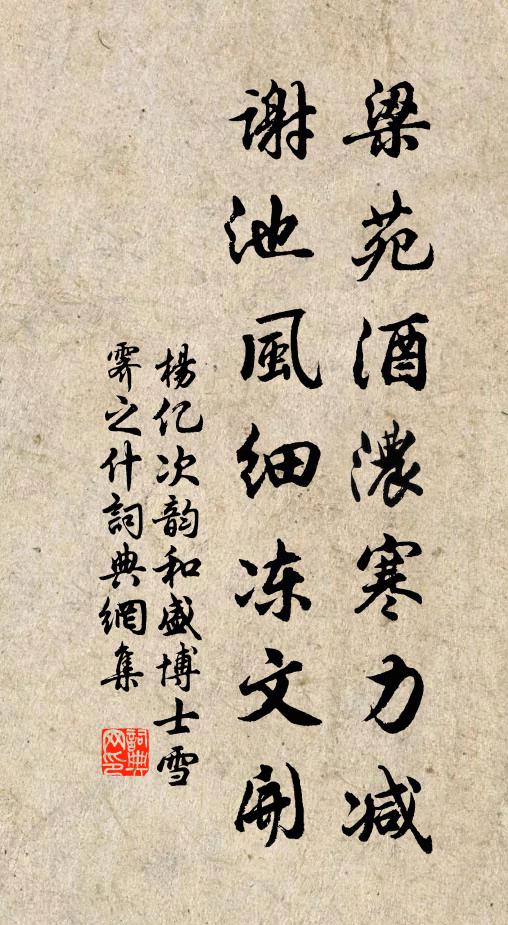 梁苑酒濃寒力减
謝池風細冻文開
楊亿次韵和盛博士雪
霁之什詞典網集
詞典网印